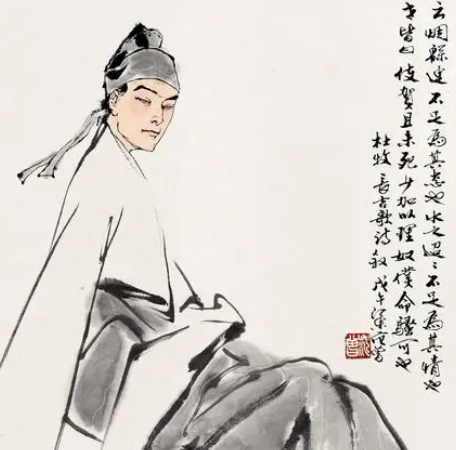 云烟緜連不足為其态也水之迢迢不足為其情也
世皆曰使贺且未死少加以理奴僕命騷可也
杜牧長吉歌诗叙戊午
范曾